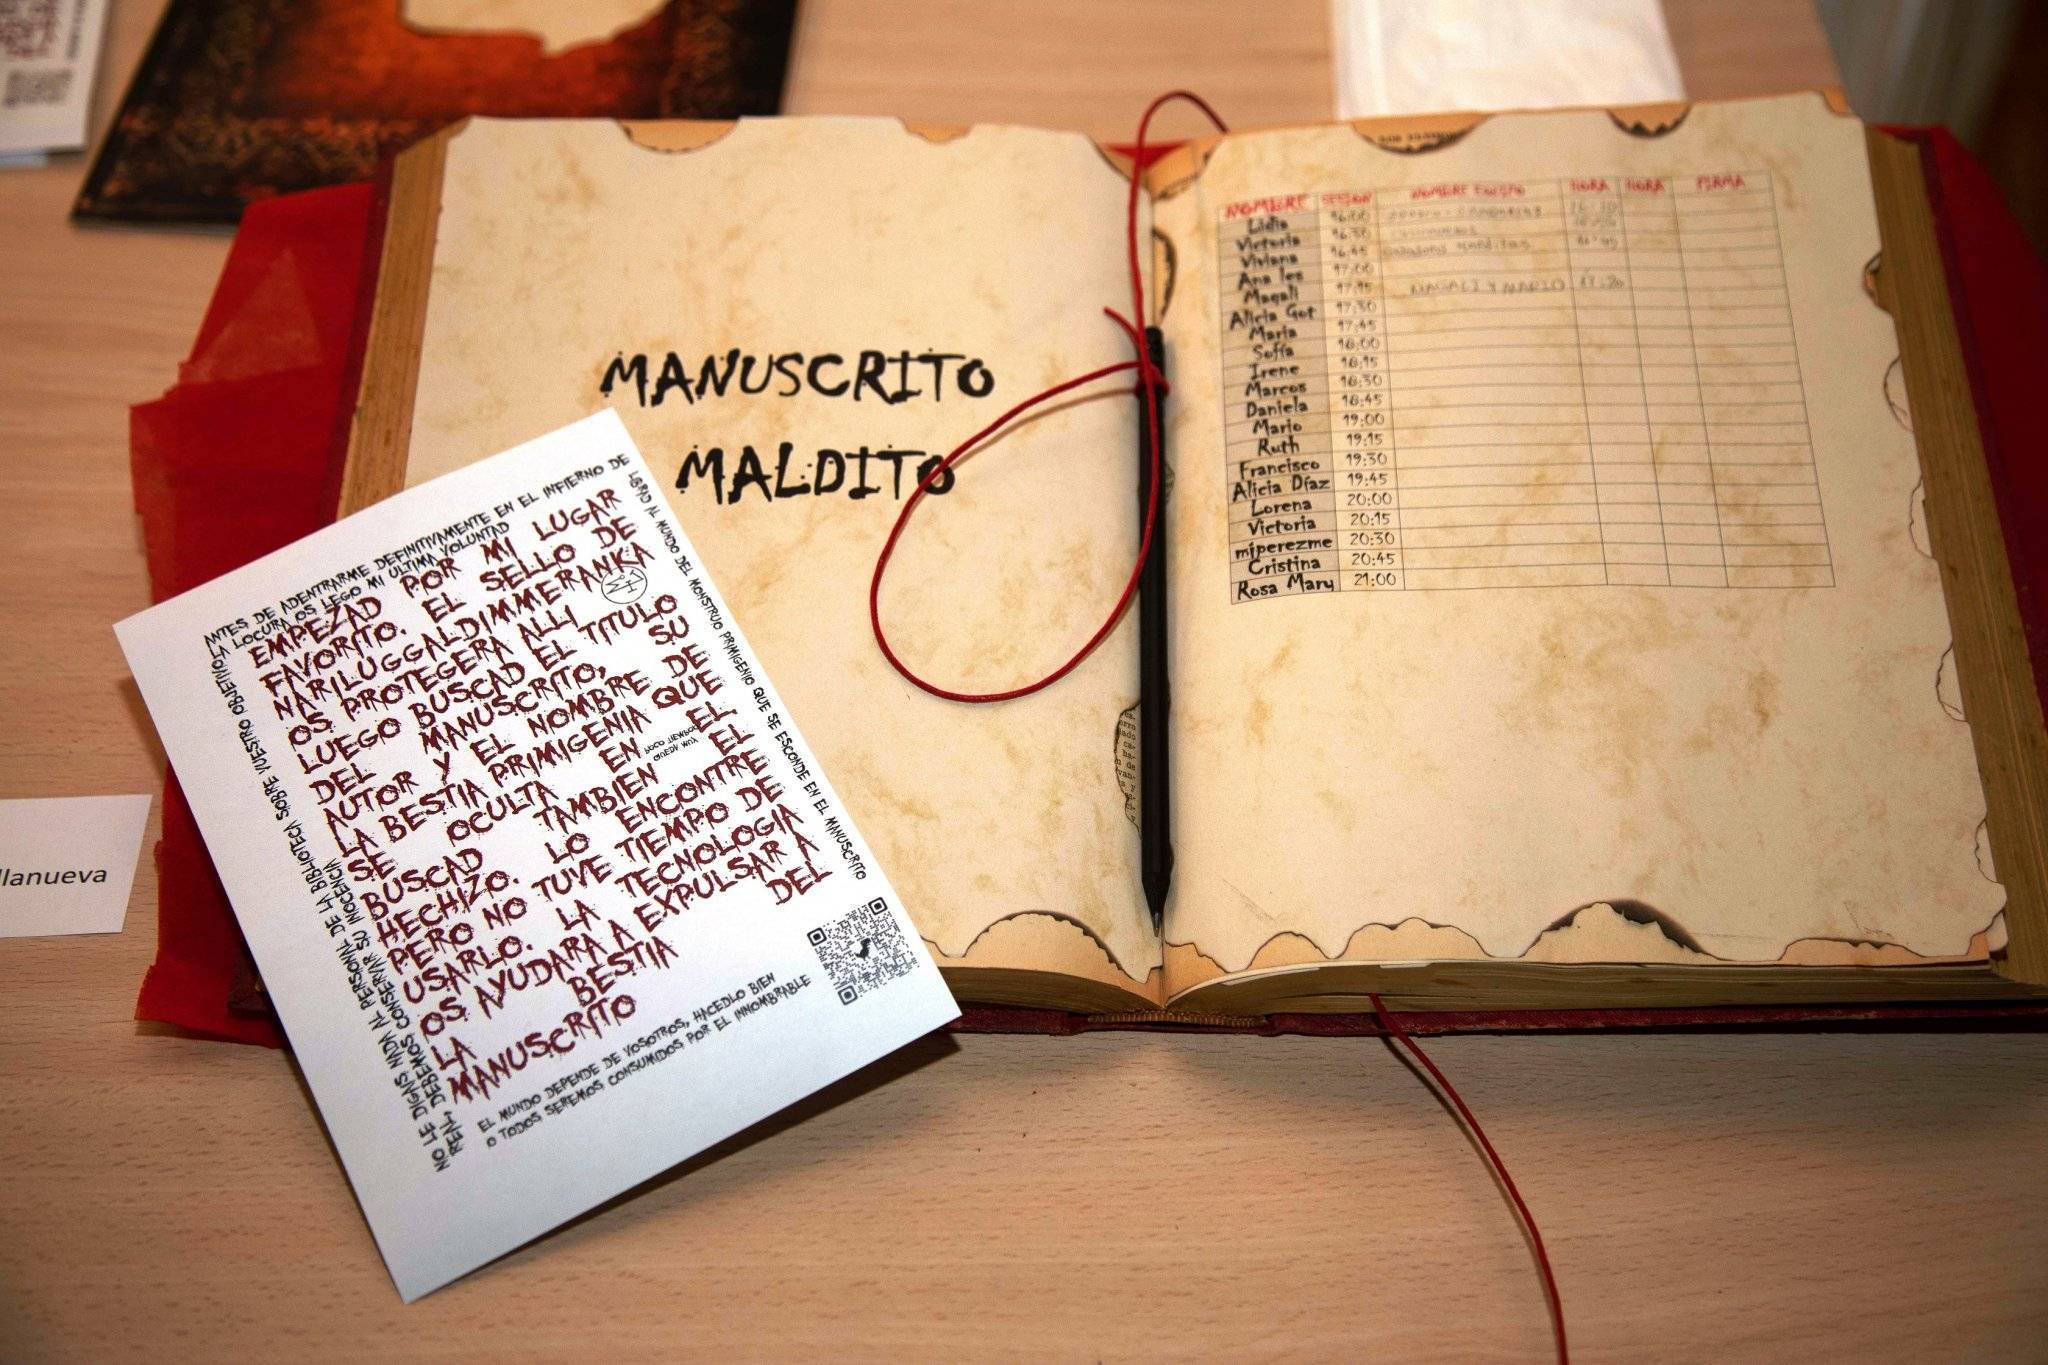 MANUSCRITO
MALDITO
ANTES DE ADENTRARME DEFINITIVAMENTE EN EL INFIERNO DE
LA LOCURA OS LEGO MI ULTIMA VOLUNTAD
EMPEZAD POR MI LUGAR
FAVORITO. EL SELLO DE
NARILUGGALDIMMERANKA
OS PROTEGERA ALLI
LUEGO BUSCAD EL TITULO
DEL MANUSCRITO, SU
AUTOR Y EL NOMBRE DE
LA BESTIA PRIMIGENIA QUE
SE OCULTA EN EL
BUSCAD TAMBIEN EL
HECHIZO. LO ENCONTRE
PERO NO TUVE TIEMPO DE
USARLO. LA TECNOLOGIA
OS AYUDARA A EXPULSAR A
LA BESTIA DEL
MANUSCRITO
POCO TIEMPO
QUEDA MUY
LIBRAD AL MUNDO DEL MONSTRUO PRIMIGENIO QUE SE ESCONDE EN EL MANUSCRITO
EL MUNDO DEPENDE DE VOSOTROS, HACEDLO BIEN
O TODOS SEREMOS CONSUMIDOS POR EL INNOMBRABLE
NO LE DIGAIS NADA AL PERSONAL DE LA BIBLIOTECA SOBRE VUESTRO OBJETIVO
REAL, DEBEMOS CONSERVAR SU INOCENCIA
llanueva
NOMBRE SESION NOMBRE EQUIPO HORA HORA FIRMA
Lidia 16:00
Victoria 16:30
Viviana 16:45 MALDITAS 16:45
Ana les 17:00
Magali 17:15 MAGALI Y MARIO 17:20
Alicia Got 17:30
Maria 17:45
Sofía 18:00
Irene 18:15
Marcos 18:30
Daniela 18:45
Mario 19:00
Ruth 19:15
Francisco 19:30
Alicia Díaz 19:45
Lorena 20:00
Victoria 20:15
mjperezme 20:30
Cristina 20:45
Rosa Mary 21:00